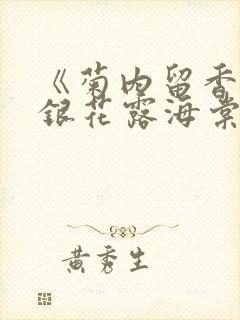 《菊内留香
銀花露海棠
黄秀生